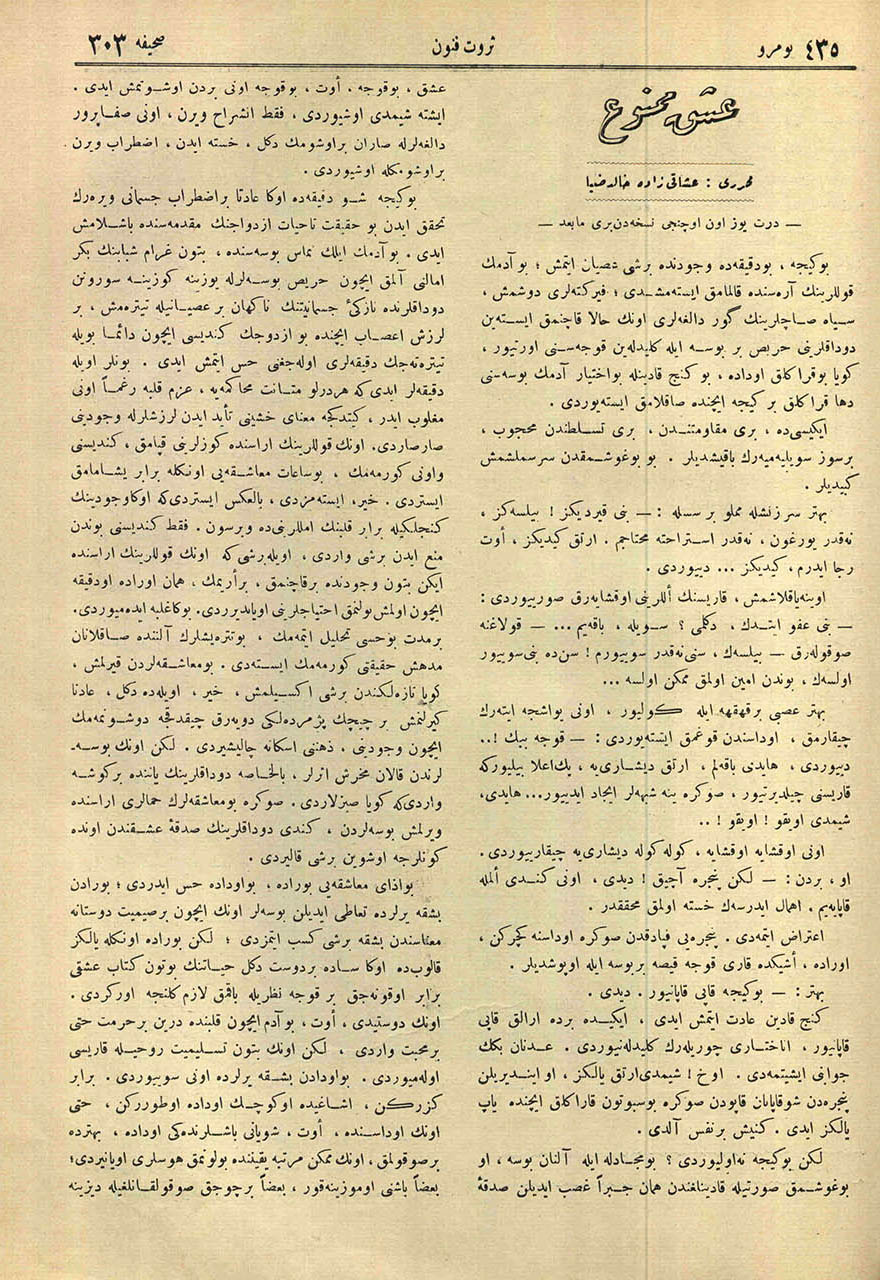 ٤٣٥ نومرو
ثروت فنون
صحیفه ٣٠٣
عشق ممنوع
محرری : عشاقی زاده خالد ضیا
— درت یوز اون اوچنجی نسخه‌دن‌بری مابعد —
بوکیجه ، بودقیقه‌ده وجودنده برشی عصیان ایتمش ؛ بوآدمك
قوللرینك آره‌سنده قالمامق ایسته‌مشدی ؛ فیرکته‌لری دوشمش ،
سیاه صاچلرینك گور دالغه‌لری اونك حالا قاچنمق ایسته‌ین
دوداقلرینی حریص بر بوسه ایله کلیدله‌ین قوجه‌سنی اورتیور ،
کویا بوقراکلق اوداده ، بوکنج قادینله بواختیار آدمك بوسه‌سنی
دها قراکلق برکیجه ایچنده صاقلامق ایسته‌یوردی .
ایکیسی‌ده ، بری مقاومتندن ، بری تسلطندن محجوب ،
برسوز سویلیه‌میه‌رك باقیشدیلر . بو بوغوشمقدن سرسملشمش
کبیدیلر .
بهتر سرزنشله مملو بر سسله : — بنی قیردیکز ! بیلسه‌کز ،
نه‌قدر یورغون ، نه‌قدر استراحته محتاجم . ارتق کیدیکز ، أوت
رجا ایدرم ، کیدیکز ... دییوردی .
اوینه یاقلاشمش ، قاریسنك أللرینی اوقشایه‌رق صوریوردی :
— بنی عفو ایتدك ، دکلمی ؟ سویله ، باقه‌یم ... — قولاغنه
صوقوله‌رق — بیلسه‌ك ، سنی نه‌قدر سوییورم ! سن‌ده بنی سوییور
اولسه‌ك ، بوندن امین اولمق ممکن اولسه ...
بهتر عصبی برقهقهه ایله کولیور ، اونی یواشجه ایته‌رك
چیقارمق ، اوداسندن قوغمق ایسته‌یوردی : — قوجه بیك !..
دییوردی ، هایدی باقه‌لم ، ارتق دیشاری‌یه ، پك‌اعلا بیلیورکه
قاریسنی چیلدیرتیور ، صوکره ینه شبهه‌لر ایجاد ایدییور... هایدی،
شیمدی اویقو ! اویقو !..
اونی اوقشایه اوقشایه ، کوله کوله دیشاری‌یه چیقارییوردی .
او ، بردن : — لکن پنجره آچیق ! دیدی ، اونی کندی ألمله
قاپایه‌یم . اهمال ایدرسه‌ك خسته اولمق محققدر .
اعتراض ایتمه‌دی . پنجره‌یی قپادقدن صوکره اوداسنه کچرکن ،
اوراده ، أشیکده قاری قوجه قیصه بربوسه ایله اوپوشدیلر .
بهتر : — بوکیجه قاپی قاپانیور . دیدی .
کنج قادین عادت ایتمش ایدی ، ایکیده برده ارالق قاپی
قاپانیور ، اناختاری چوریله‌رك کلیدله‌نیوردی . عدنان بکك
جوابی ایشیتمه‌دی . اوخ ! شیمدی‌ارتق یالکز ، او ایندیریلن
پنجره‌دن شوقاپانان قاپودن صوکره بوسبوتون قاراکلق ایچنده یاپ
یالکز ایدی . کنیش برنفس آلدی .
لکن بوکیجه نه‌اولیوردی ؟ بومجادله ایله آلنان بوسه ، او
بوغوشمق صورتیله قادینلغندن همان جبراً غصب ایدیلن صدقهٔ
عشق ، بوقوجه ، أوت ، بوقوجه اونی بردن اوشوتمش ایدی .
ایشته شیمدی اوشیوردی ، فقط انشراح ویرن ، اونی صفاپرور
دالغه‌لرله صاران براوشومك دکل ، خسته ایدن ، اضطراب ویرن
براوشومکله اوشیوردی .
بوکیجه شو دقیقه‌ده اوکا عادتا براضطراب جسمانی ویره‌رك
تحقق ایدن بو حقیقت تاحیات ازدواجنك مقدمه‌سنده باشلامش
ایدی . بوآدمك ایلك تماس بوسه‌سنده ، بتون غرام شبابنك بکر
امالنی آلمق ایچون حریص بوسه‌لرله یوزینه کوزینه سورونن
دوداقلرنده نازکیٔ جسمانیتنك ناکهان برعصیانیله تیتره‌مش ، بر
لرزش اعصاب ایچنده بو ازدوجك کندیسی ایچون دائما بویله
تیتره‌ته‌جك دقیقه‌لری اوله‌جغنی حس ایتمش ایدی . بونلر اویله
دقیقه‌لر ایدی‌که هردرلو متانت محاکمه‌یه ، عزم قلبه رغماً اونی
مغلوب ایدر ، کیتدکجه معنای خشینی تأید ایدن لرزشلرله وجودینی
صارصاردی. اونك قوللرینك اراسنده کوزلرینی قپامق ، کندیسنی
واونی کورمه‌مك ، بوساعات معاشقه‌یی اونکله برابر یشامامق
ایستردی . خیر، ایسته‌مزدی ، بالعکس ایستردی‌که اوکاوجودینك
کنجلکیله برابر قلبنك امللرینی‌ده ویرسون . فقط کندیسنی بوندن
منع ایدن برشی واردی ، اویله‌برشی‌که اونك قوللرینك اراسنده
ایکن بتون وجودنده برقاچنمق ، برأریمك ، همان اوراده اودقیقه
ایچون اولمش‌بولنمق احتیاجلرینی اویاندیرردی. بوکاغلبه ایده‌میوردی.
برمدت بوحسی تحلیل ایتمه‌مك ، بوتتره‌یشلرك آلتنده صاقلانان
مدهش حقیقتی کورمه‌مك ایسته‌دی . بومعاشقه‌لردن قیرلمش ،
کویا تازه‌لکندن برشی اکسیلمش ، خیر ، اویله‌ده دکل ، عادتا
کیرلنمش برچیچك پژمرده‌لکی دویه‌رق چیقدقجه دوشونمه‌مك
ایچون وجودینی ، ذهنی اسکاته چالیشیردی . لکن اونك بوسه-
لرندن قالان مخرش اثرلر ، بالخاصه دوداقلرینك یاننده برکوشه
واردی‌که کویا صیزلاردی . صوکره بومعاشقه‌لرك حمالری اراسنده
ویرلمش بوسه‌لردن ، کندی دوداقلرینك صدقهٔ عشقندن اونده
کونلرجه اوشوین برشی قالیردی .
بواذای معاشقه‌یی بوراده ، بواوداده حس ایدردی ؛ بورادن
بشقه برلرده تعاطی ایدیلن بوسه‌لر اونك ایچون برصمیمیت دوستانه
معناسندن بشقه برشی کسب ایتمزدی ؛ لکن بوراده اونکله یالکز
قالوب‌ده اوکا ساده بردوست دکل حیاتنك بوتون کتاب عشقی
برابر اوقونه‌جق برقوجه نظریله باقمق لازم کلنجه اورکردی .
اونك دوستیدی ، أوت ، بوآدم ایچون قلبنده درین برحرمت حتی
برمحبت واردی ، لکن اونك بتون تسلیمیت روحیله قاریسی
اوله‌میوردی . بواودادن بشقه یرلرده اونی سوییوردی . برابر
کزرکن ، اشاغیده اوکوچك اوداده اوطوررکن ، حتی
اونك اوداسنده ، أوت ، شویانی باشلرنده‌کی اوداده ، بهترده
برصوقولمق ، اونك ممکن مرتبه یقیننده بولونمق هوسلری اویانیردی؛
بعضاً باشنی اوموزینه‌قور ، بعضاً برچوجق صوقولقانلغیله دیزینه